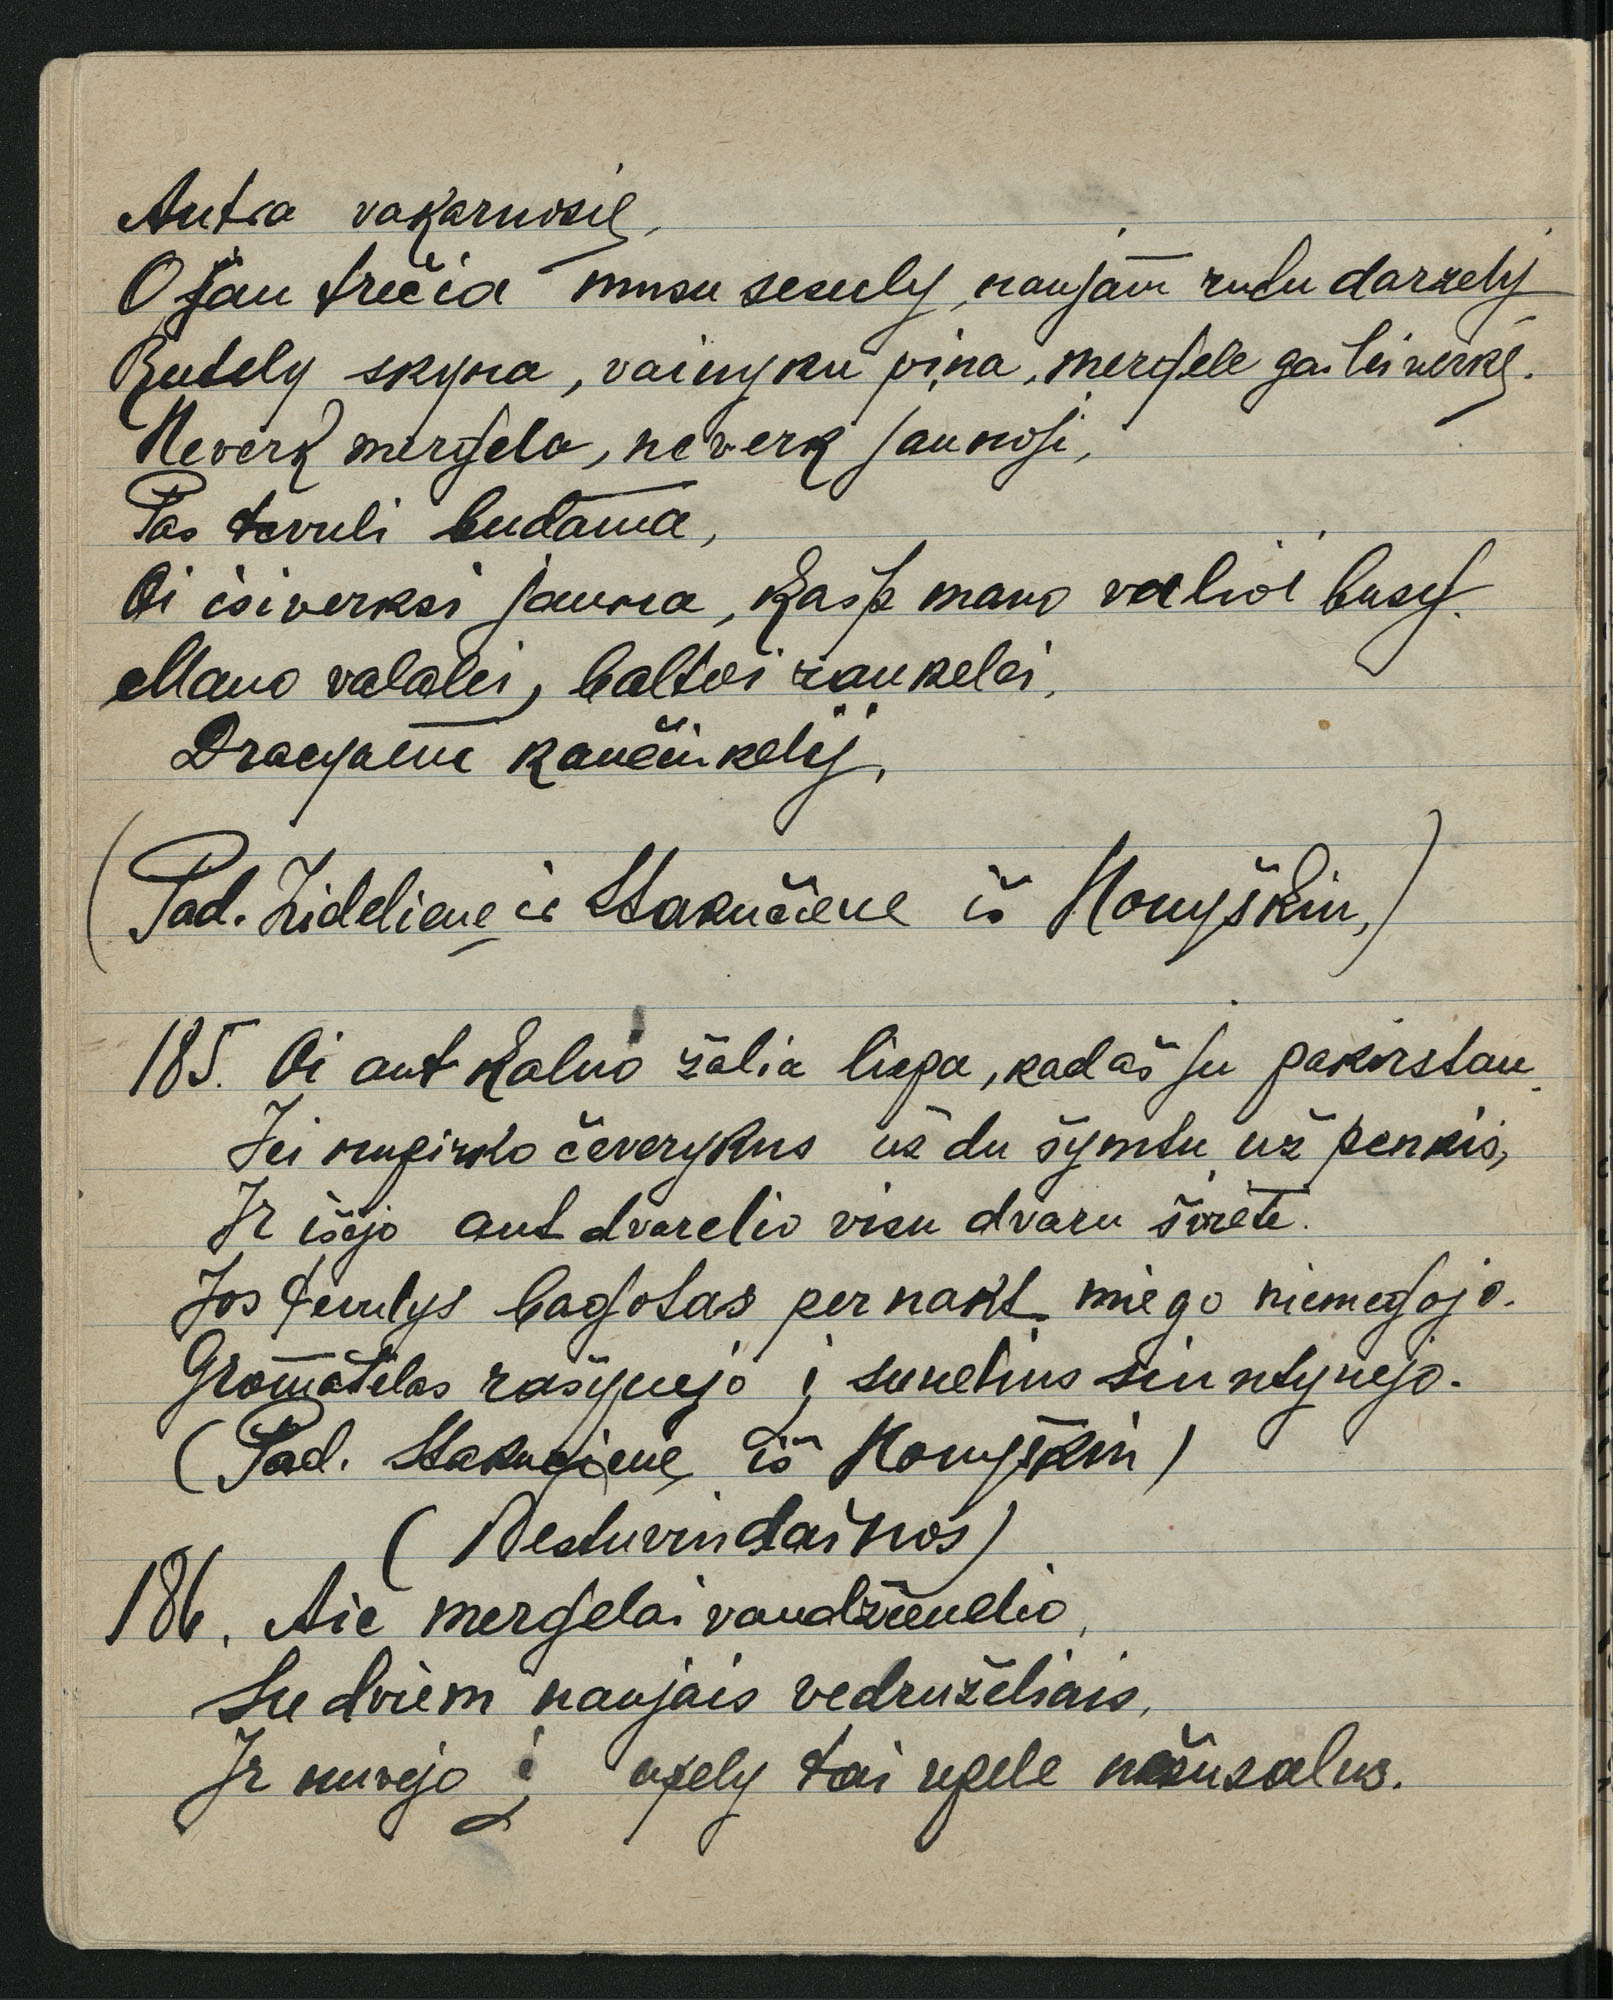 Antra vakarnosie,
O jau trečia musu sesuly, naujam̄ rutu darzely
Rutely skyna, vainyku pina, mergele gailei verkė.
Neverk mergela, neverk jaunoji,
Pas tevuli budam̄a,
Oi isiverksi jauna, kaip mano valioi busy.
Mano valalei, baltoi rankelei,
Dracyam̄ kančiukelij,
(Pad. Zideliene ir Stakučiene iš Nonyškiu,)
185. Oi ant kalno žalia liepa, kad aš ju pakirstau.
Jei nupirko čeverykus už du šymtu už penkis,
Ir išėjo ant dvarelio visu dvaru švietė.
Jos tevulys bagotas per nakt miego niemegojo.
Gromatelas rašynejo į sunelius siuntynejo.
(Pad. Stakučiene iš Nonyškiu)
(Vestuviu dainos)
186. Aie mergelai vandžiunelio,
Su dviem naujais vedruželiais,
Ir nuvejo į upely tai upele užšusalus.